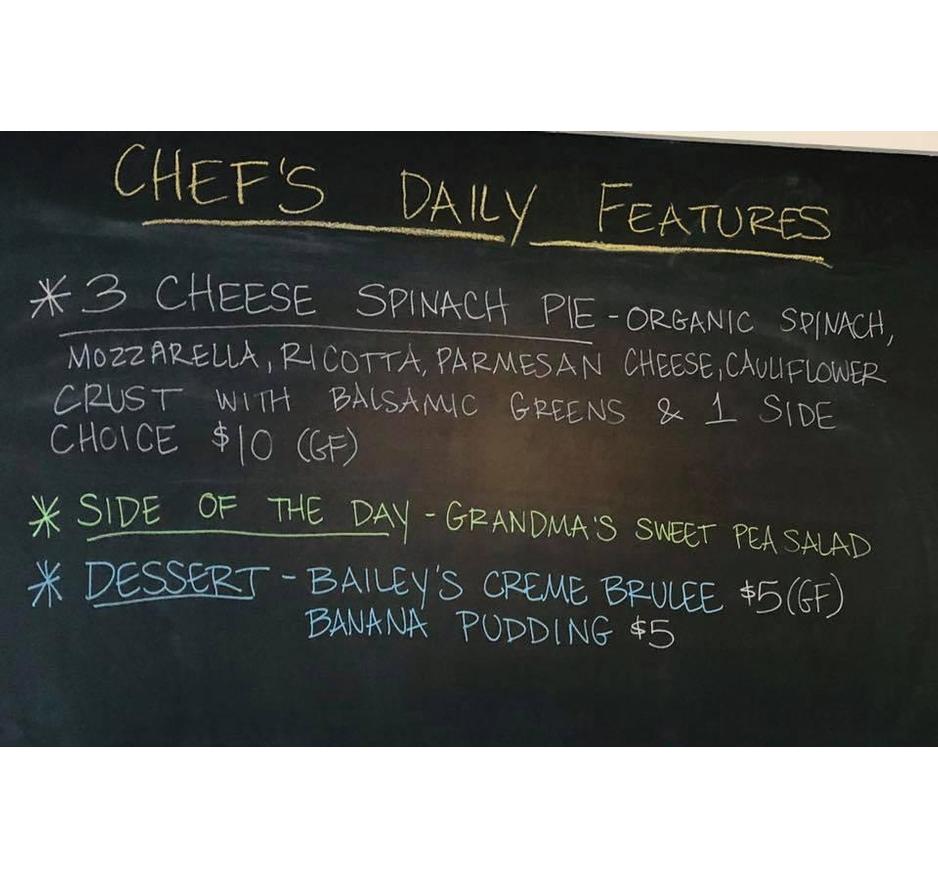 CHEF'S DAILY FEATURES
* 3 CHEESE SPINACH PIE - ORGANIC SPINACH,
MOZZARELLA, RICOTTA, PARMESAN CHEESE, CAULIFLOWER
CRUST WITH BALSAMIC GREENS & 1 SIDE
CHOICE $10 (GF)
* SIDE OF THE DAY - GRANDMA'S SWEET PEA SALAD
* DESSERT - BAILEY'S CREME BRULEE $5 (GF)
BANANA PUDDING $5